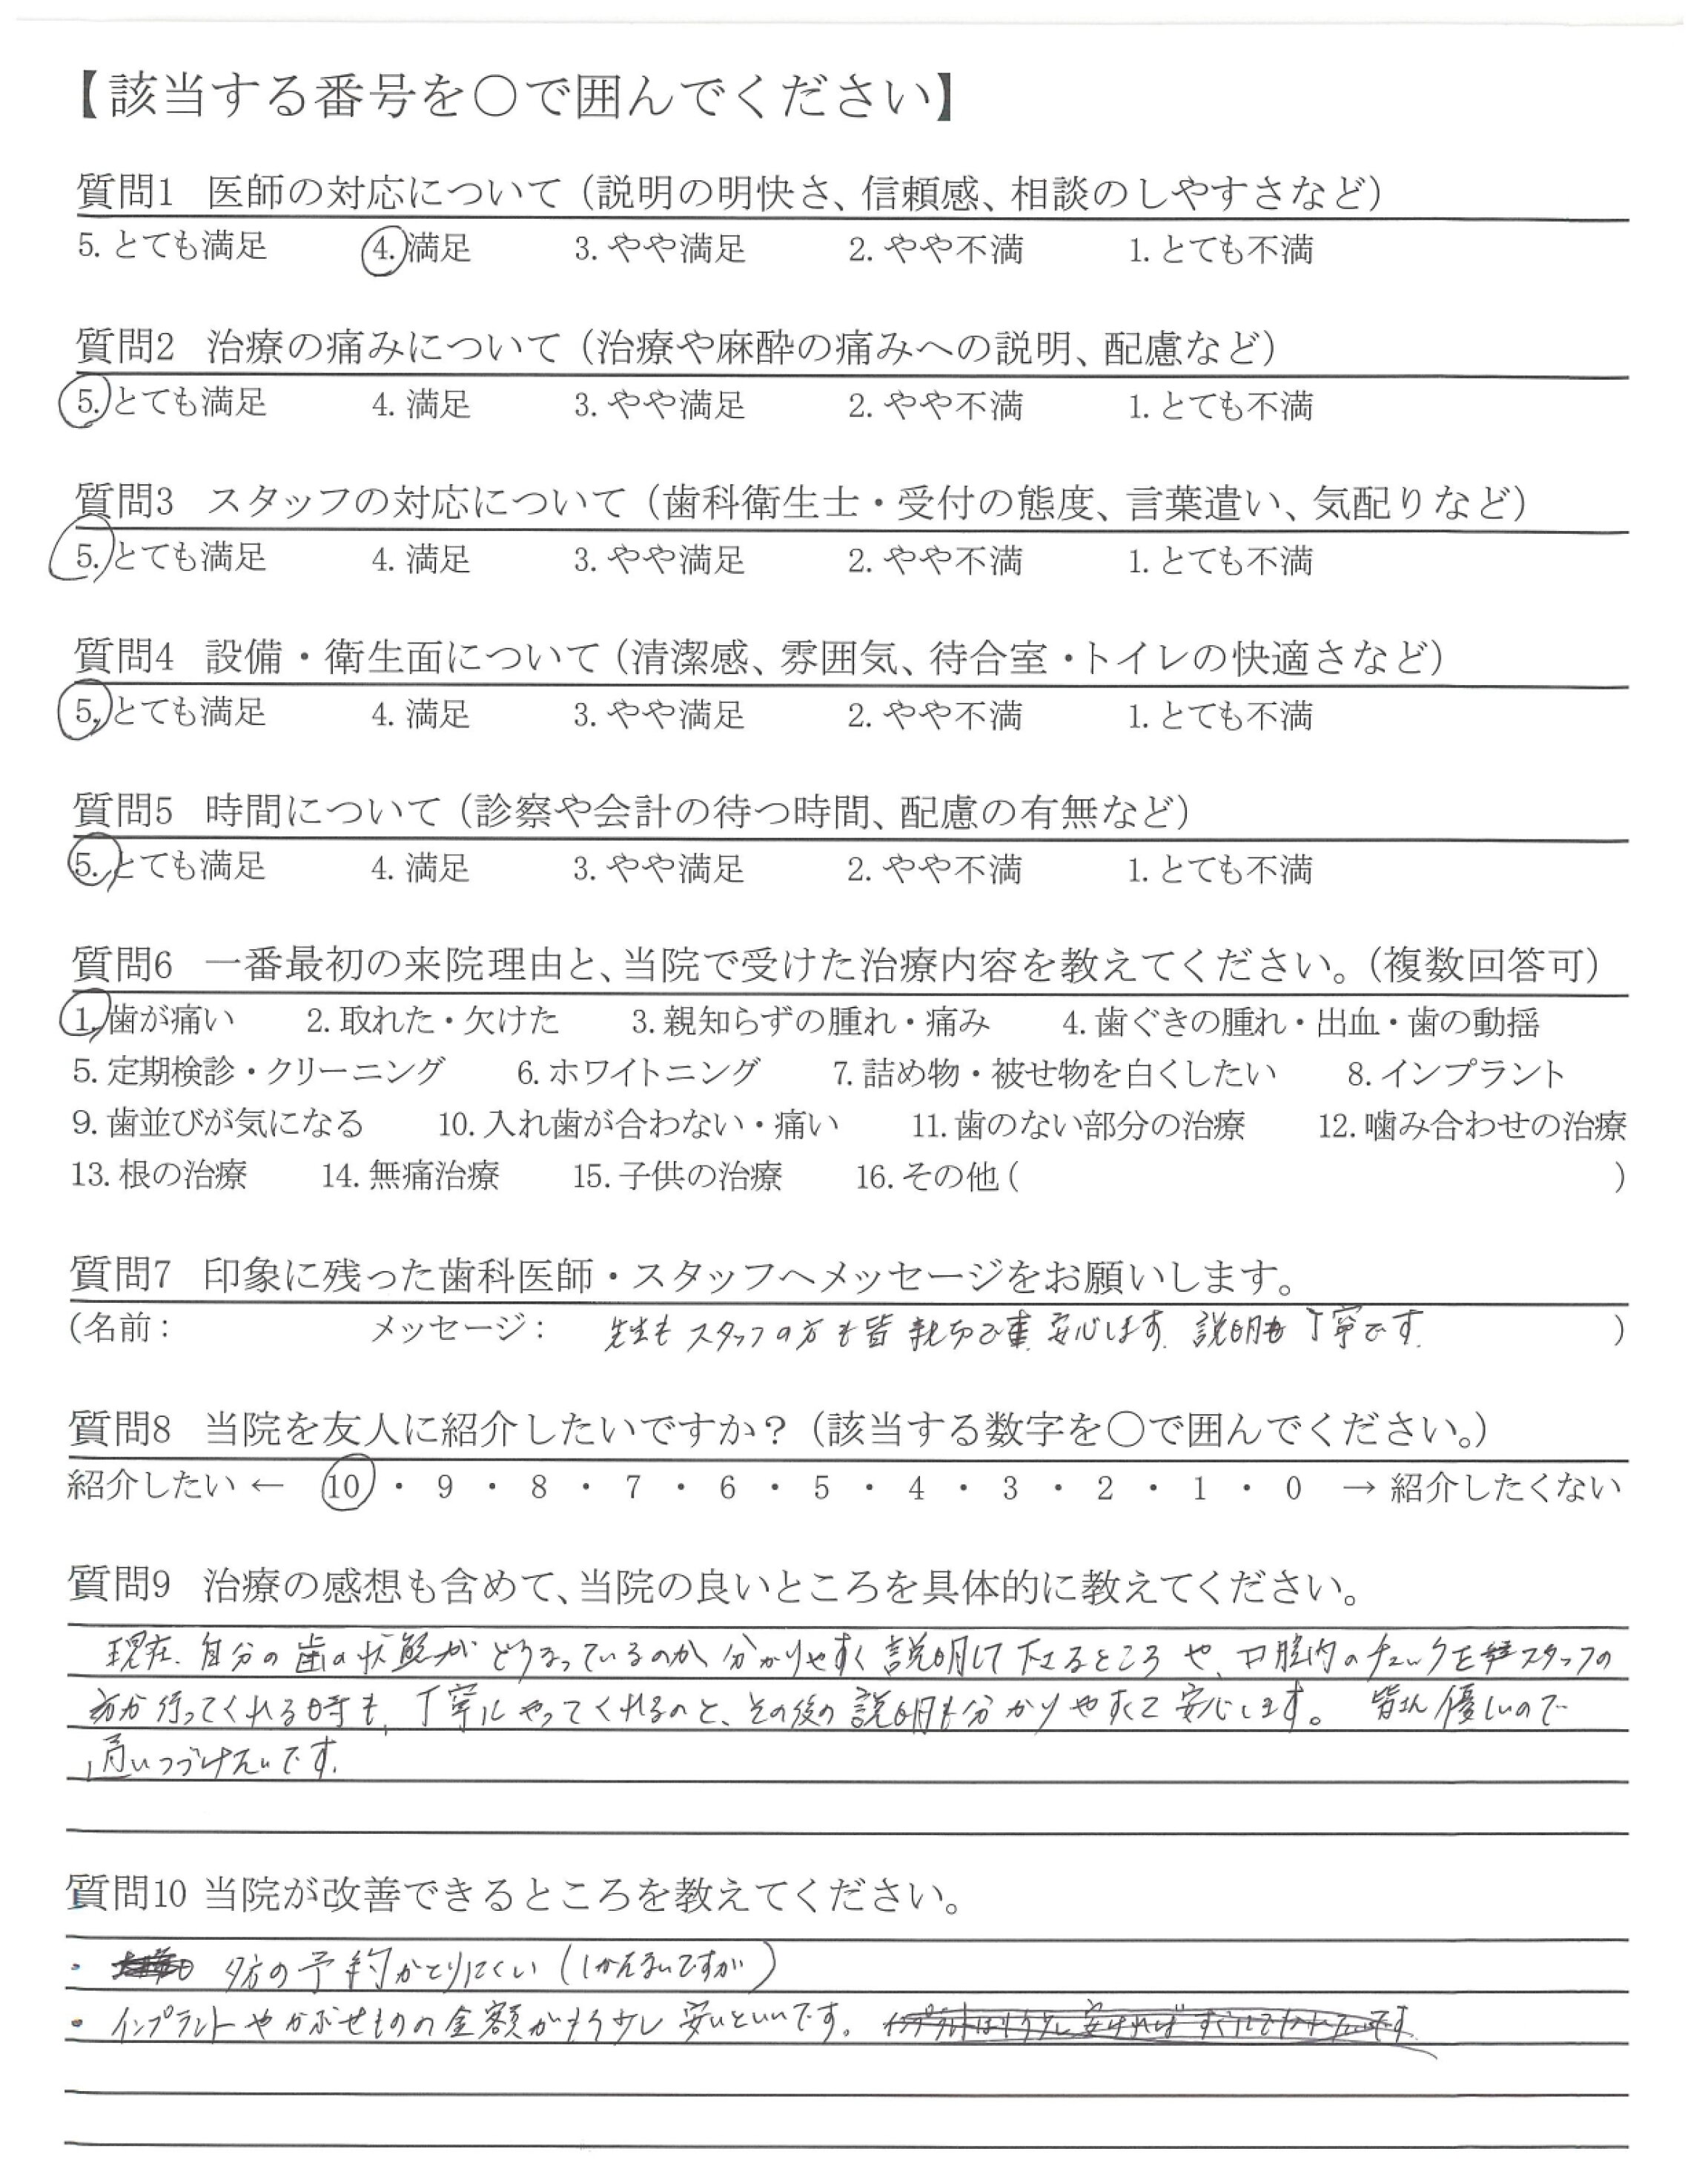 【該当する番号を○で囲んでください】
質問1 医師の対応について（説明の明快さ、信頼感、相談のしやすさなど）
5. とても満足 4. 満足 3. やや満足 2. やや不満 1. とても不満
質問2 治療の痛みについて（治療や麻酔の痛みへの説明、配慮など）
5. とても満足 4. 満足 3. やや満足 2. やや不満 1. とても不満
質問3 スタッフの対応について（歯科衛生士・受付の態度、言葉遣い、気配りなど）
5. とても満足 4. 満足 3. やや満足 2. やや不満 1. とても不満
質問4 設備・衛生面について（清潔感、雰囲気、待合室・トイレの快適さなど）
5. とても満足 4. 満足 3. やや満足 2. やや不満 1. とても不満
質問5 時間について（診察や会計の待つ時間、配慮の有無など）
5. とても満足 4. 満足 3. やや満足 2. やや不満 1. とても不満
質問6 一番最初の来院理由と、当院で受けた治療内容を教えてください。（複数回答可）
1. 歯が痛い 2. 取れた・欠けた 3. 親知らずの腫れ・痛み 4. 歯ぐきの腫れ・出血・歯の動揺
5. 定期検診・クリーニング 6. ホワイトニング 7. 詰め物・被せ物を白くしたい 8. インプラント
9. 歯並びが気になる 10. 入れ歯が合わない・痛い 11. 歯のない部分の治療 12. 噛み合わせの治療
13. 根の治療 14. 無痛治療 15. 子供の治療 16. その他（ ）
質問7 印象に残った歯科医師・スタッフへメッセージをお願いします。
（名前： メッセージ： 先生も スタッフの方も皆 親切で 安心します. 説明も 丁寧です. ）
質問8 当院を友人に紹介したいですか？（該当する数字を○で囲んでください。）
紹介したい ← 10 ・ 9 ・ 8 ・ 7 ・ 6 ・ 5 ・ 4 ・ 3 ・ 2 ・ 1 ・ 0 → 紹介したくない
質問9 治療の感想も含めて、当院の良いところを具体的に教えてください。
現在、自分の歯の状態がどうなっているのか 分かりやすく 説明して下さるところや、口腔内のチェックを スタッフの
方が行ってくれる時も、丁寧にやってくれるのと、その後の説明も分かりやすくて安心します。 皆さん優しいので
通いつづけたいです.
質問10 当院が改善できるところを教えてください。
・ 夕方の予約がとりにくい（しかたないですが）
・ インプラントやかぶせものの金額がもう少し 安いといいです。